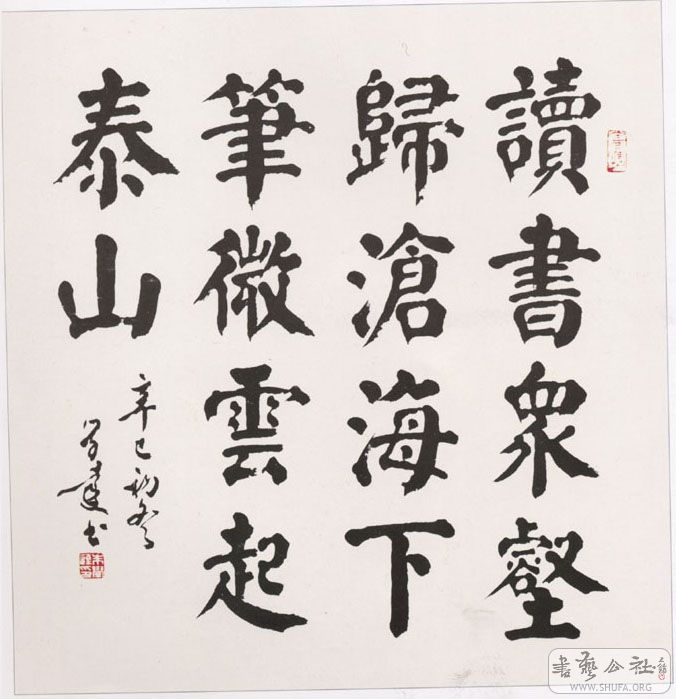 讀書眾壑
歸滄海下
筆微雲起
泰山
辛巳初冬
學達书
書藝公社
WWW.SHUFA.ORG